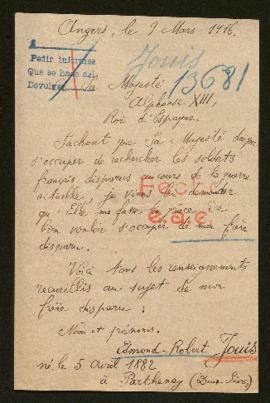 Angers, le 9 Mars 1916.
Jouis
13681
Pedir informes
Que se hace así.
Devolver
Sa Majesté
Alphonse XIII,
Roi d'Espagne.
Sachant que Sa Majesté daigne
s'occuper de rechercher les soldats
français disparus au cours de la guerre
actuelle, je viens lui demander
qu'Elle me fasse la grâce de
bien vouloir s'occuper de mon frère
disparu.
Fecho
Voici tous les renseignements
recueillis au sujet de mon
frère disparu :
Nom et prénoms.
Edmond-Robert Jouis
né le 5 avril 1882
à Parthenay (Deux-Sèvres)